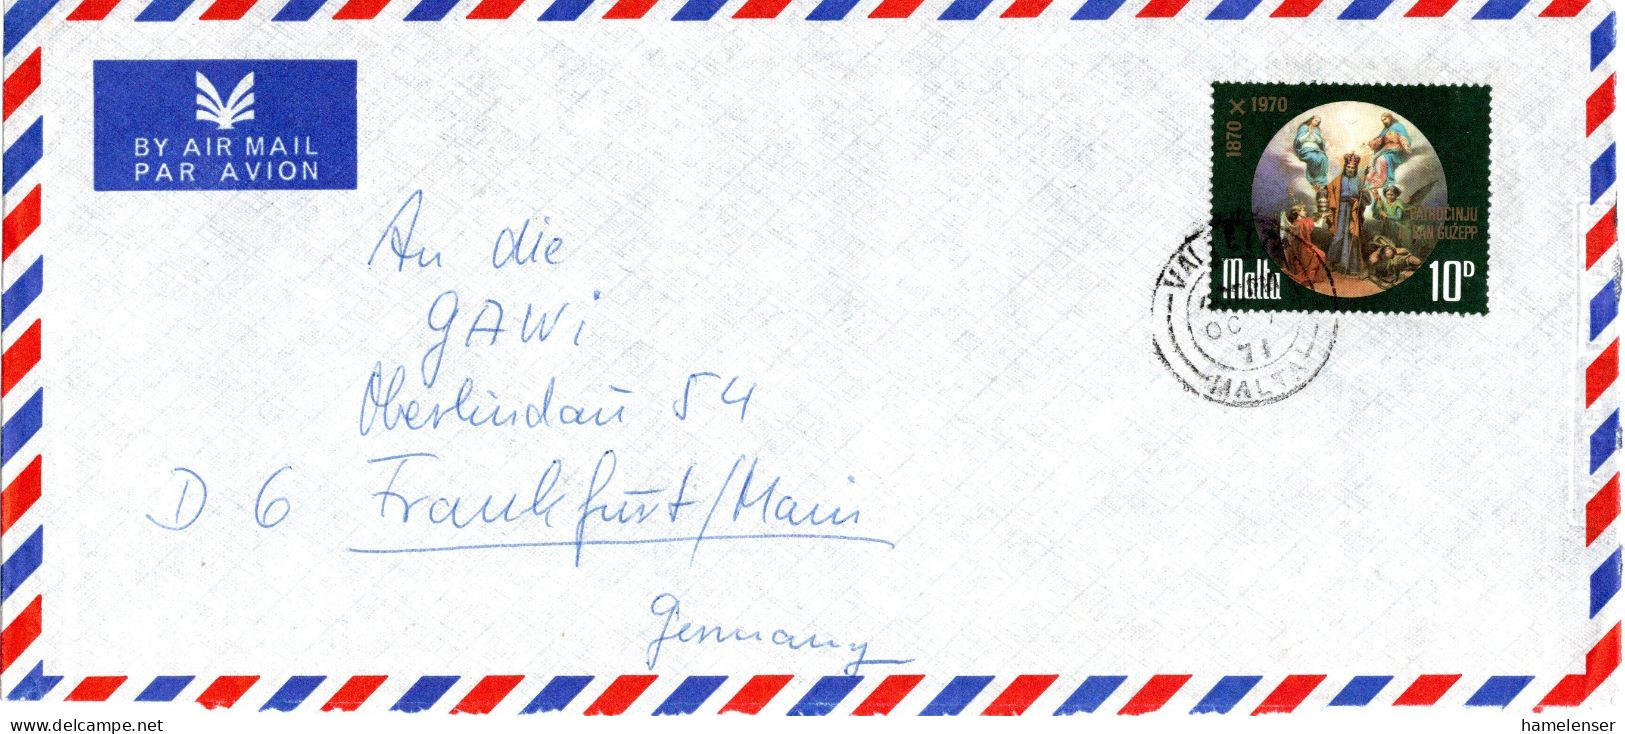 BY AIR MAIL
PAR AVION
1870 X 1970
PATROĊINJU
SAN ĠUŻEPP
Malta 10D
VALLETTA
OC
71
MALTA
An die
GAWi
Oberlindau 54
D 6 Frankfurt/Main
Germany
www.delcampe.net
hamelenser